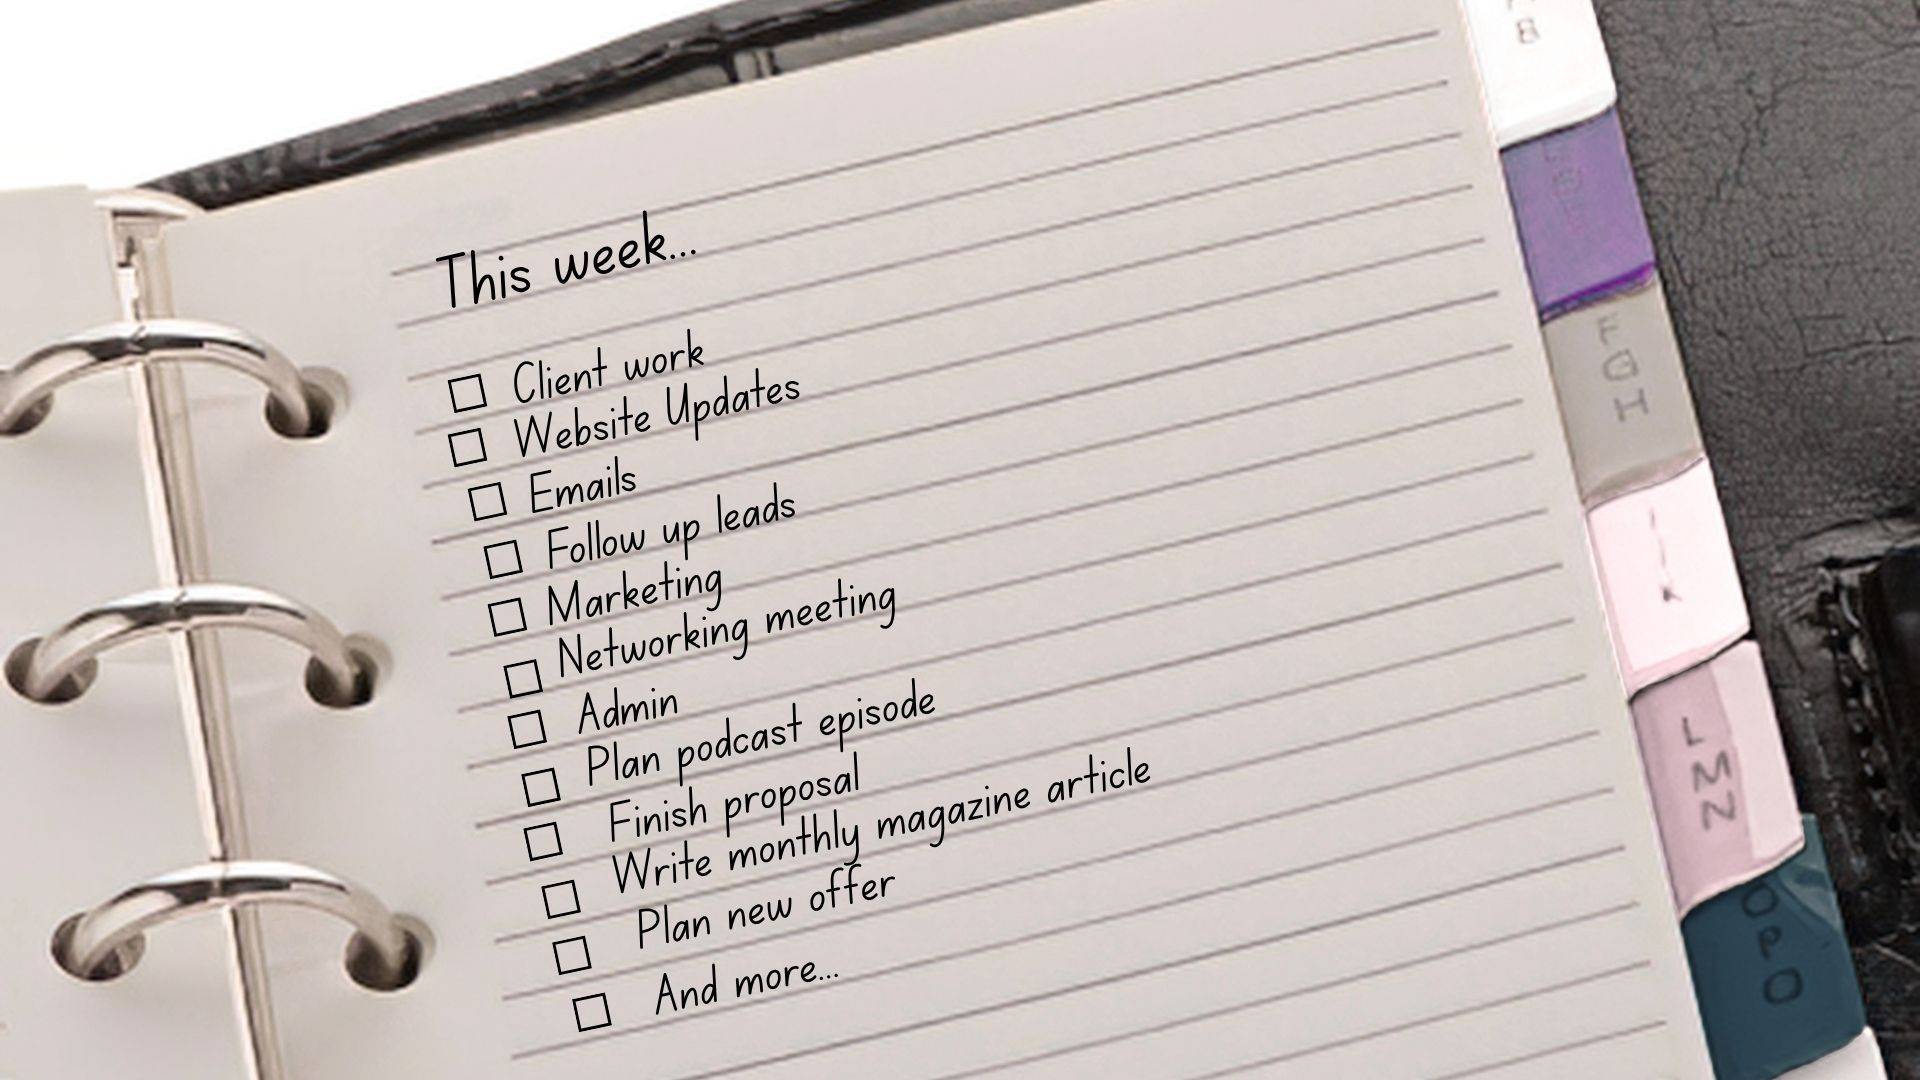 This week...
Client work
Website Updates
Emails
Follow up leads
Marketing
Networking meeting
Admin
Plan podcast episode
Finish proposal
Write monthly magazine article
Plan new offer
And more...
B
F
G
H
I
J
K
L
M
N
O
P